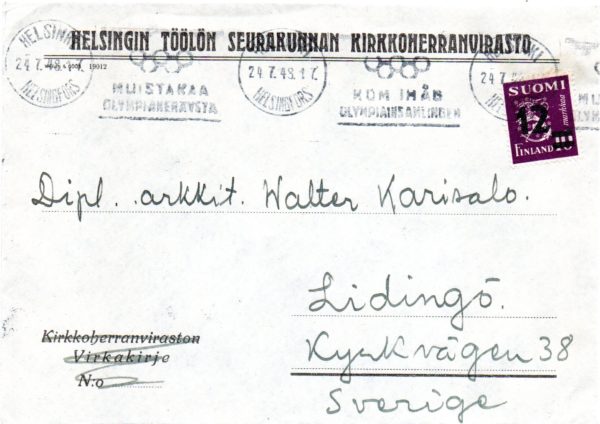 HELSINGIN TÖÖLÖN SEURAKUNNAN KIRKKOHERRANVIRASTO
19012
HELSINKI
24.7.48.17.
HELSINGFORS
MUISTAKAA
OLYMPIAKERÄYSTÄ
HELSINKI
24.7.48.17.
HELSINGFORS
KOM IHÅG
OLYMPIAINSAMLINGEN
24.7.48
SUOMI
12
markkaa
FINLAND
10
Dipl. arkkit. Walter Karisalo.
Lidingö.
Kyrkvägen 38
Sverige
Kirkkoherranviraston
Virkakirje
N:o